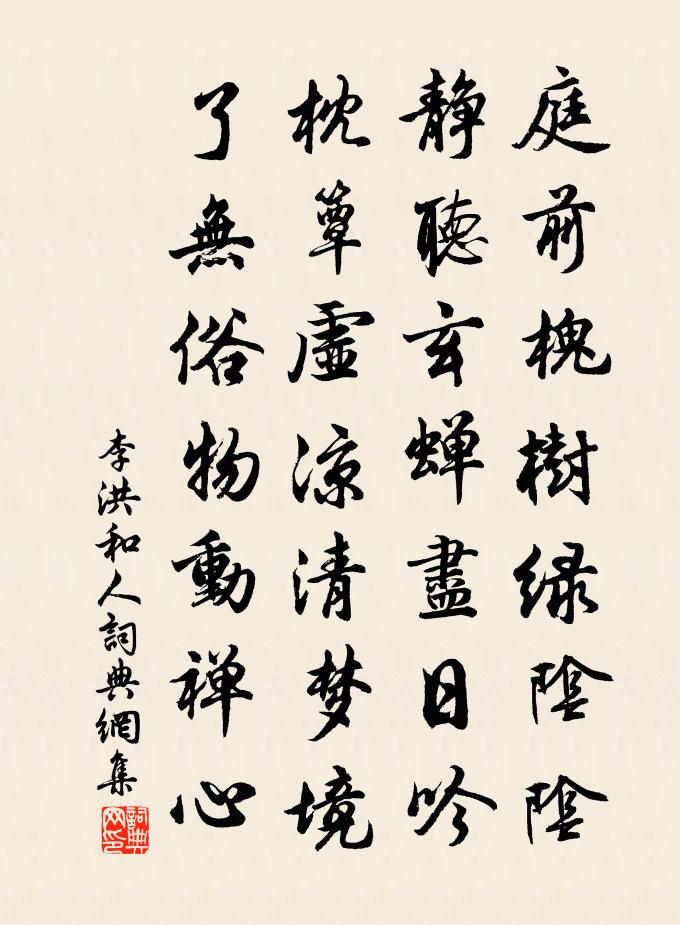 庭前槐樹綠陰陰
靜聽玄蟬盡日吟
枕簟虛涼清梦境
了無俗物動禅心
李洪和人詞典網集
詞典网印